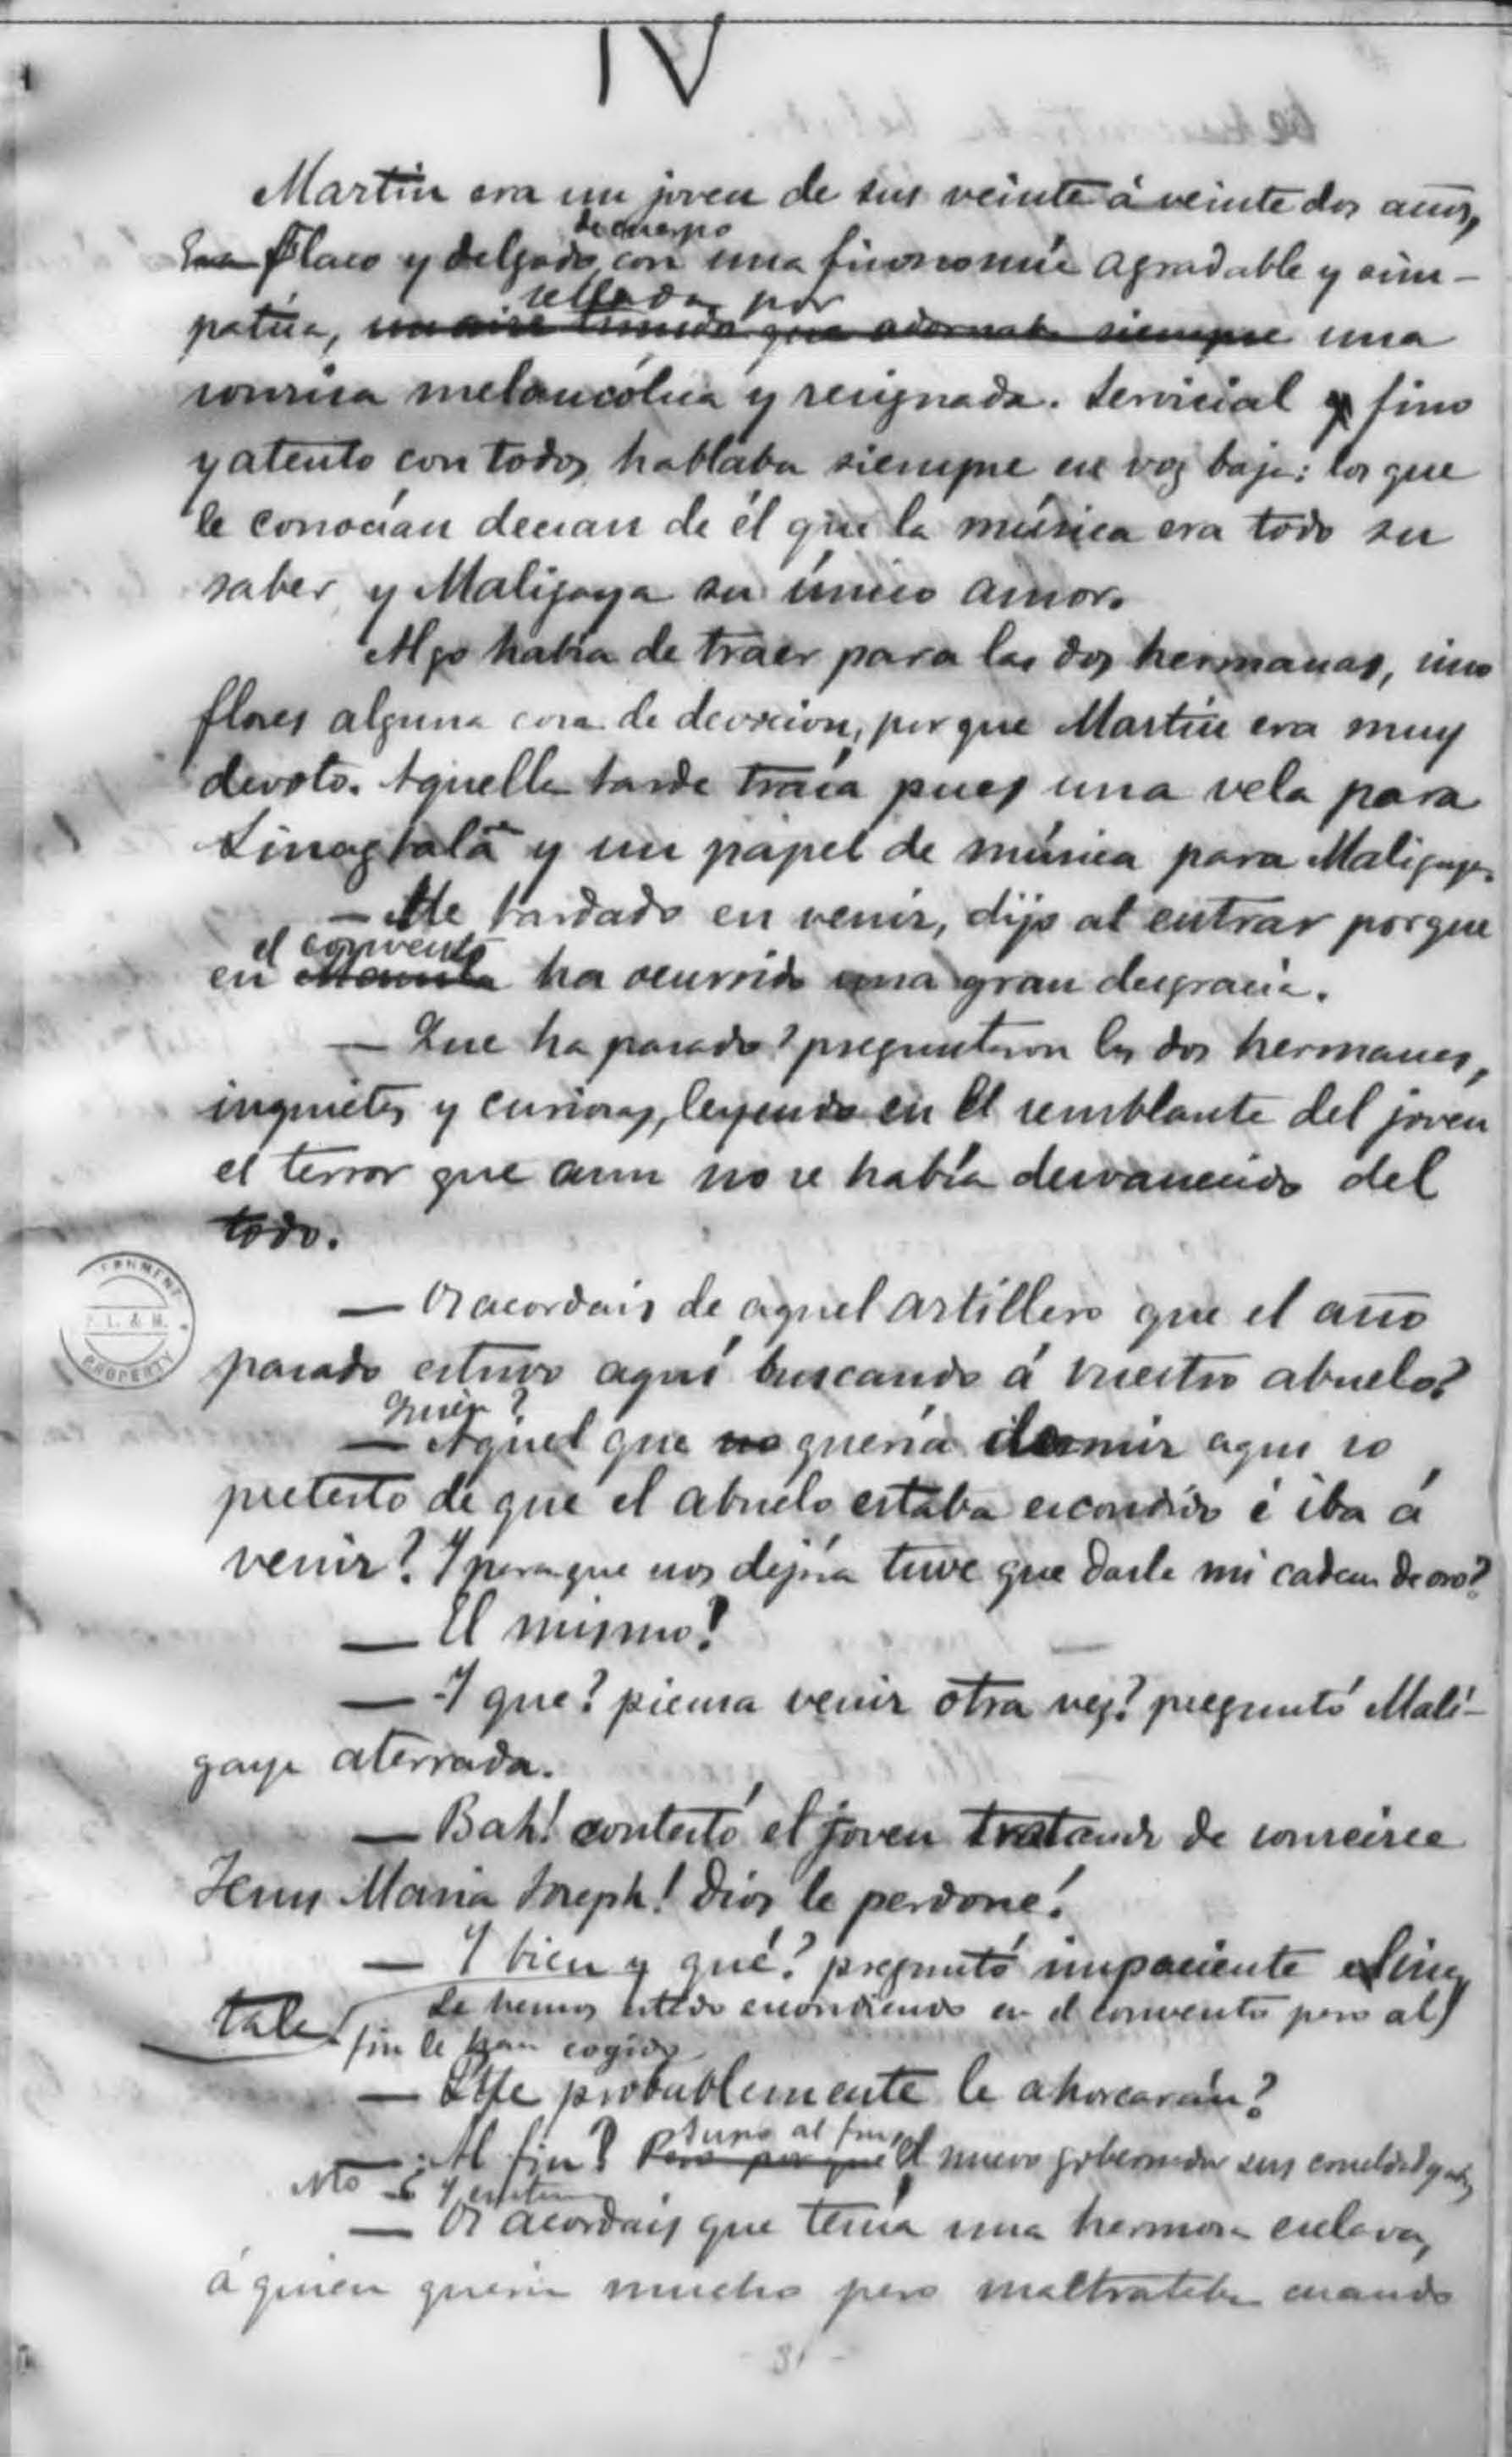 IV
Martin era un joven de sus veinte á veinte dos años,
de cuerpo
Era Flaco y delgado, con una fisonomía agradable y sim-
sellada por
pática, un aire timido que adornaba siempre una
sonrisa melancólica y resignada. Servicial y fino
y atento con todos, hablaba siempre en voz baja: los que
le conocían decian de él que la música era todo su
saber, y Maligaya su único amor.
Algo habia de traer para las dos hermanas, sino
flores alguna cosa de devocion, porque Martin era muy
devoto. Aquella tarde traía pues una vela para
Sinagtalà y un papel de música para Maligaya.
— He tardado en venir, dijo al entrar porque
el convento
en Manila ha ocurrido una gran desgracia.
— Que ha pasado? preguntaron las dos hermanas,
inquietas y curiosas, leyendo en el semblante del joven
el terror que aun no se había desvanecido del
todo.
— Os acordais de aquel artillero que el año
pasado estuvo aquí buscando á vuestro abuelo?
Quien?
— Aquel que no quería dormir aqui so
pretesto de que el abuelo estaba escondido é iba á
venir? Y para que nos dejára tuve que darle mi cadena de oro?
— El mismo!
— Y que? piensa venir otra vez? preguntó Mali-
gaya aterrada.
— Bah! contestó el joven tratando de sonreirse
Jesus Maria Joseph! Dios le perdone!
— Y bien y qué? preguntó impaciente Sinag
tala
Le hemos estado escondiendo en el convento pero al
fin le han cogido
— Y probablemente le ahorcarán?
— Al fin? Pero por que el nuevo gobernador
supo al fin
— Os acordais que tenía una hermosa esclava,
á quien queria mucho pero maltrataba cuando
PROPERTY